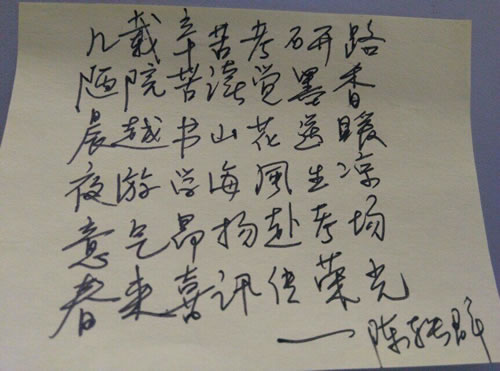 几载辛苦考研路
陋院苦读觉墨香
晨越书山花送暖
夜游学海风生凉
意气昂扬赴考场
春来喜讯传荣光
——陈